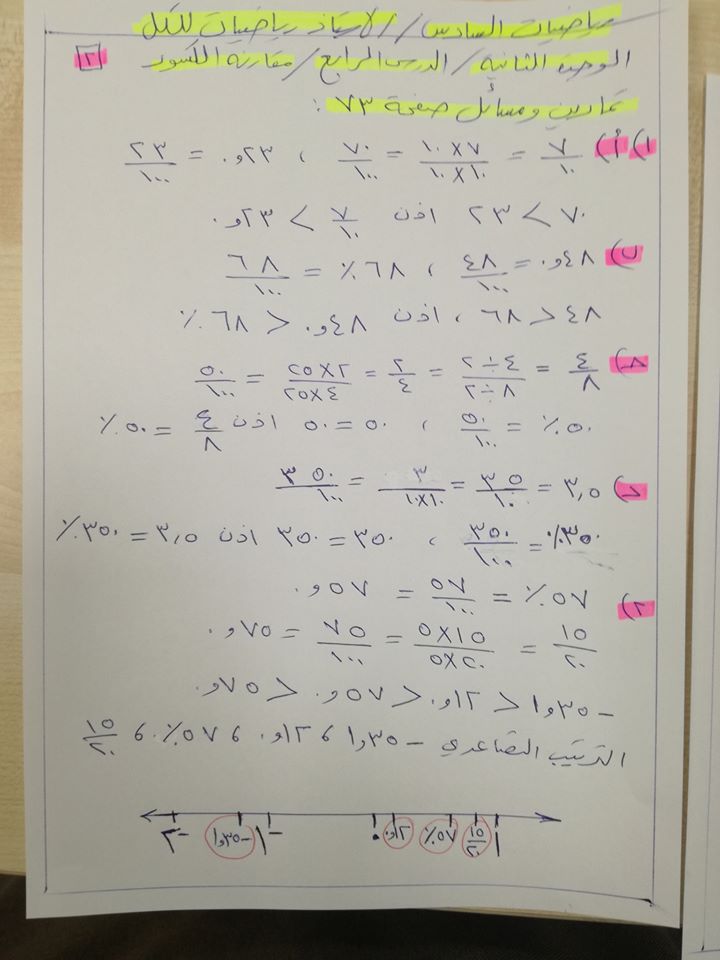 رياضيات السادس / الاستاذ رياضيات للكل
٢
الوحدة الثانية / الدرس الرابع / مقارنة الكسور
تمارين ومسائل صفحة ٧٣ :
١) أ) ٧/١٠ = ٧×١٠/١٠×١٠ = ٧٠/١٠٠ ، ٢٣و٠ = ٢٣/١٠٠
٧٠ > ٢٣ اذن ٧/١٠ > ٢٣و٠
ب) ٤٨و٠ = ٤٨/١٠٠ ، ٦٨٪ = ٦٨/١٠٠
٤٨ < ٦٨ ، اذن ٤٨و٠ < ٦٨٪
ج) ٤/٨ = ٤÷٢/٨÷٢ = ٢/٤ = ٢×٢٥/٤×٢٥ = ٥٠/١٠٠
٥٠٪ = ٥٠/١٠٠ ، ٥٠ = ٥٠ اذن ٤/٨ = ٥٠٪
د) ٣,٥ = ٣٥/١٠ = ٣/١٠×١٠ = ٣٥٠/١٠٠
٣٥٠٪ = ٣٥٠/١٠٠ ، ٣٥٠ = ٣٥٠ اذن ٣,٥ = ٣٥٠٪
٢) ٥٧٪ = ٥٧/١٠٠ = ٥٧و٠
١٥/٢٠ = ١٥×٥/٢٠×٥ = ٧٥/١٠٠ = ٧٥و٠
-٣٥و١ < ١٢و٠ < ٥٧و٠ < ٧٥و٠
الترتيب التصاعدي -٣٥و١ ، ١٢و٠ ، ٥٧٪ ، ١٥/٢٠
-٢ -٣٥و١ -١ ٠ ١٢و٠ ٥٧٪ ١٥/٢٠ ١